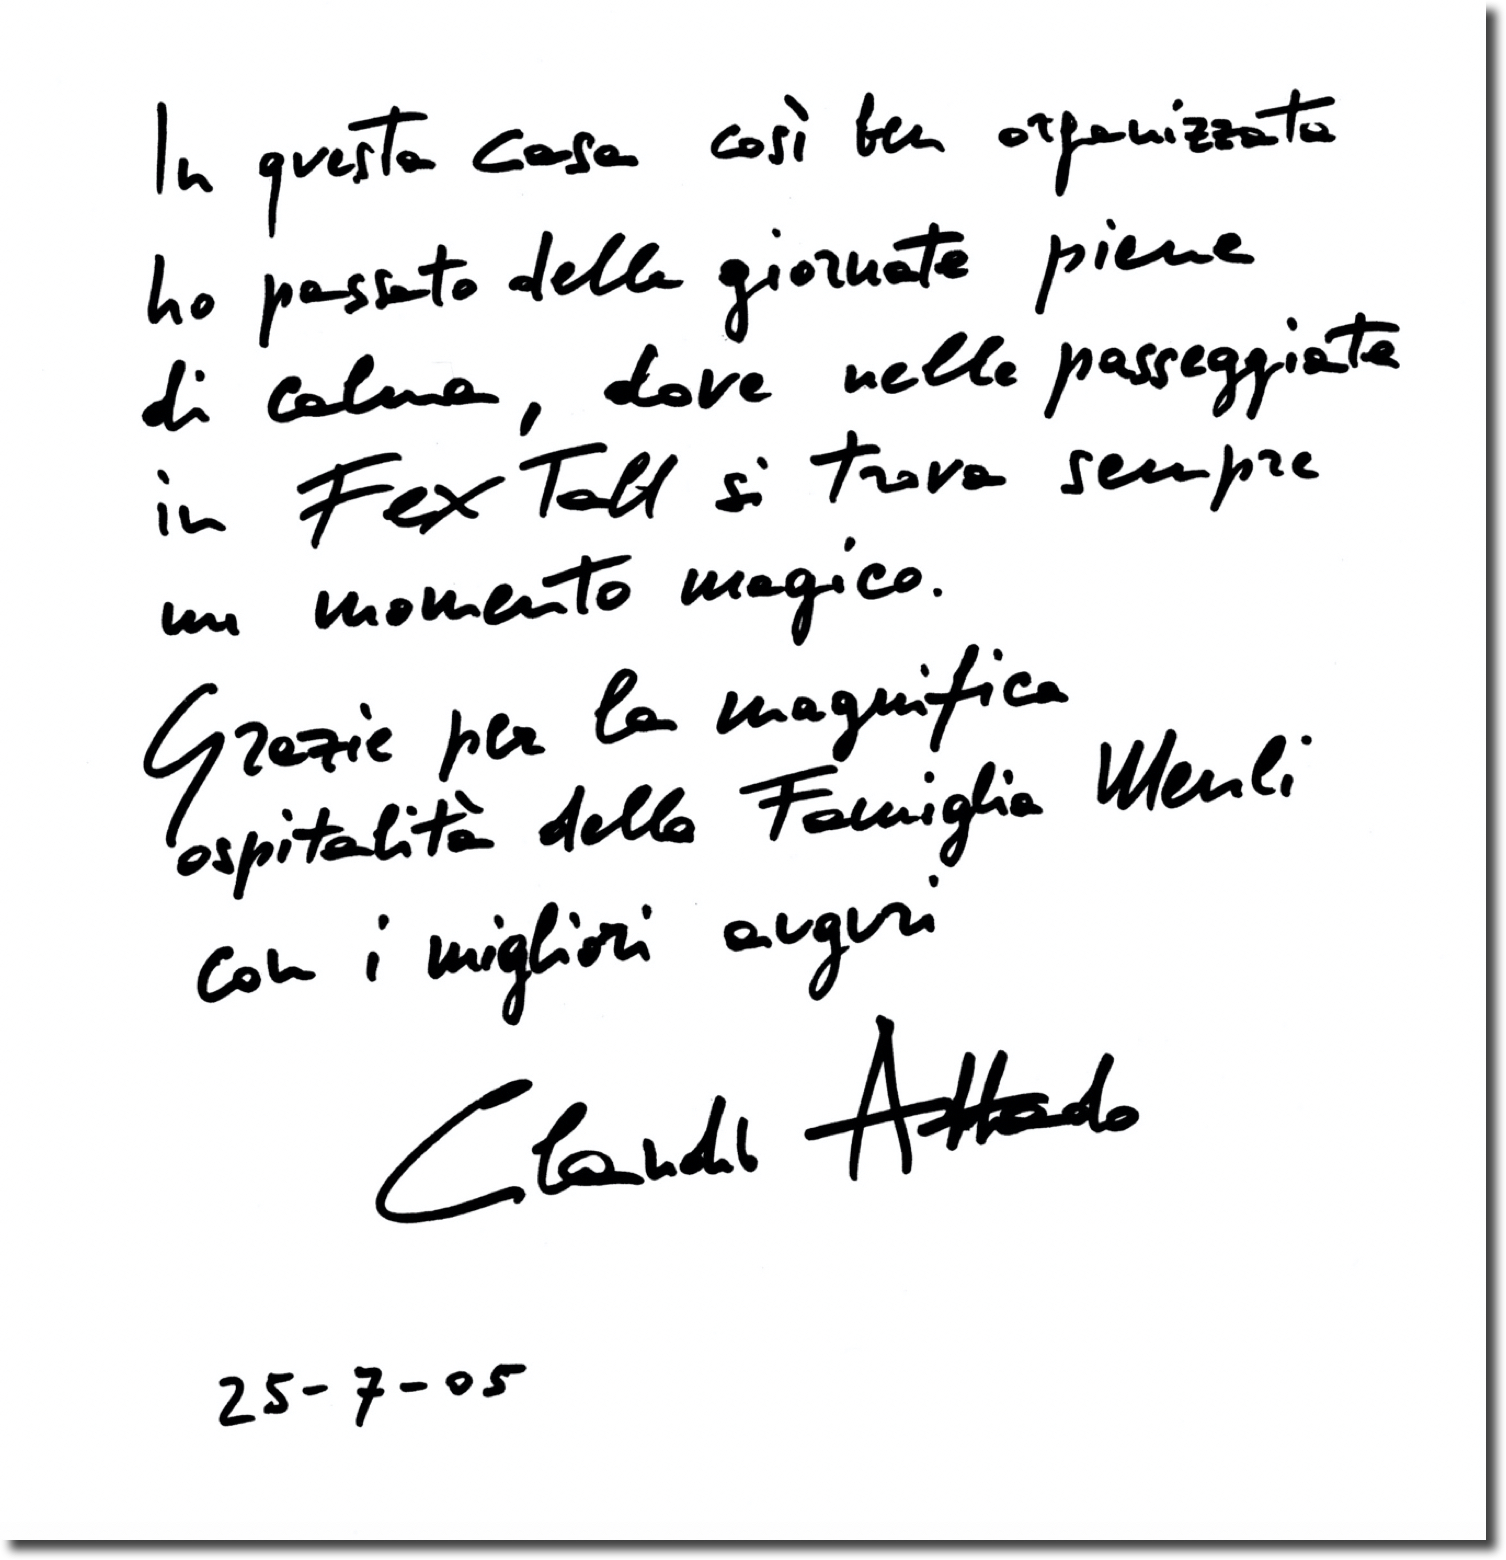 In questa casa così ben organizzata
ho passato delle giornate piene
di calma, dove nelle passeggiate
in Fex Tall si trova sempre
un momento magico.
Grazie per la magnifica
ospitalità della Famiglia
con i migliori auguri
Claudio
25-7-05